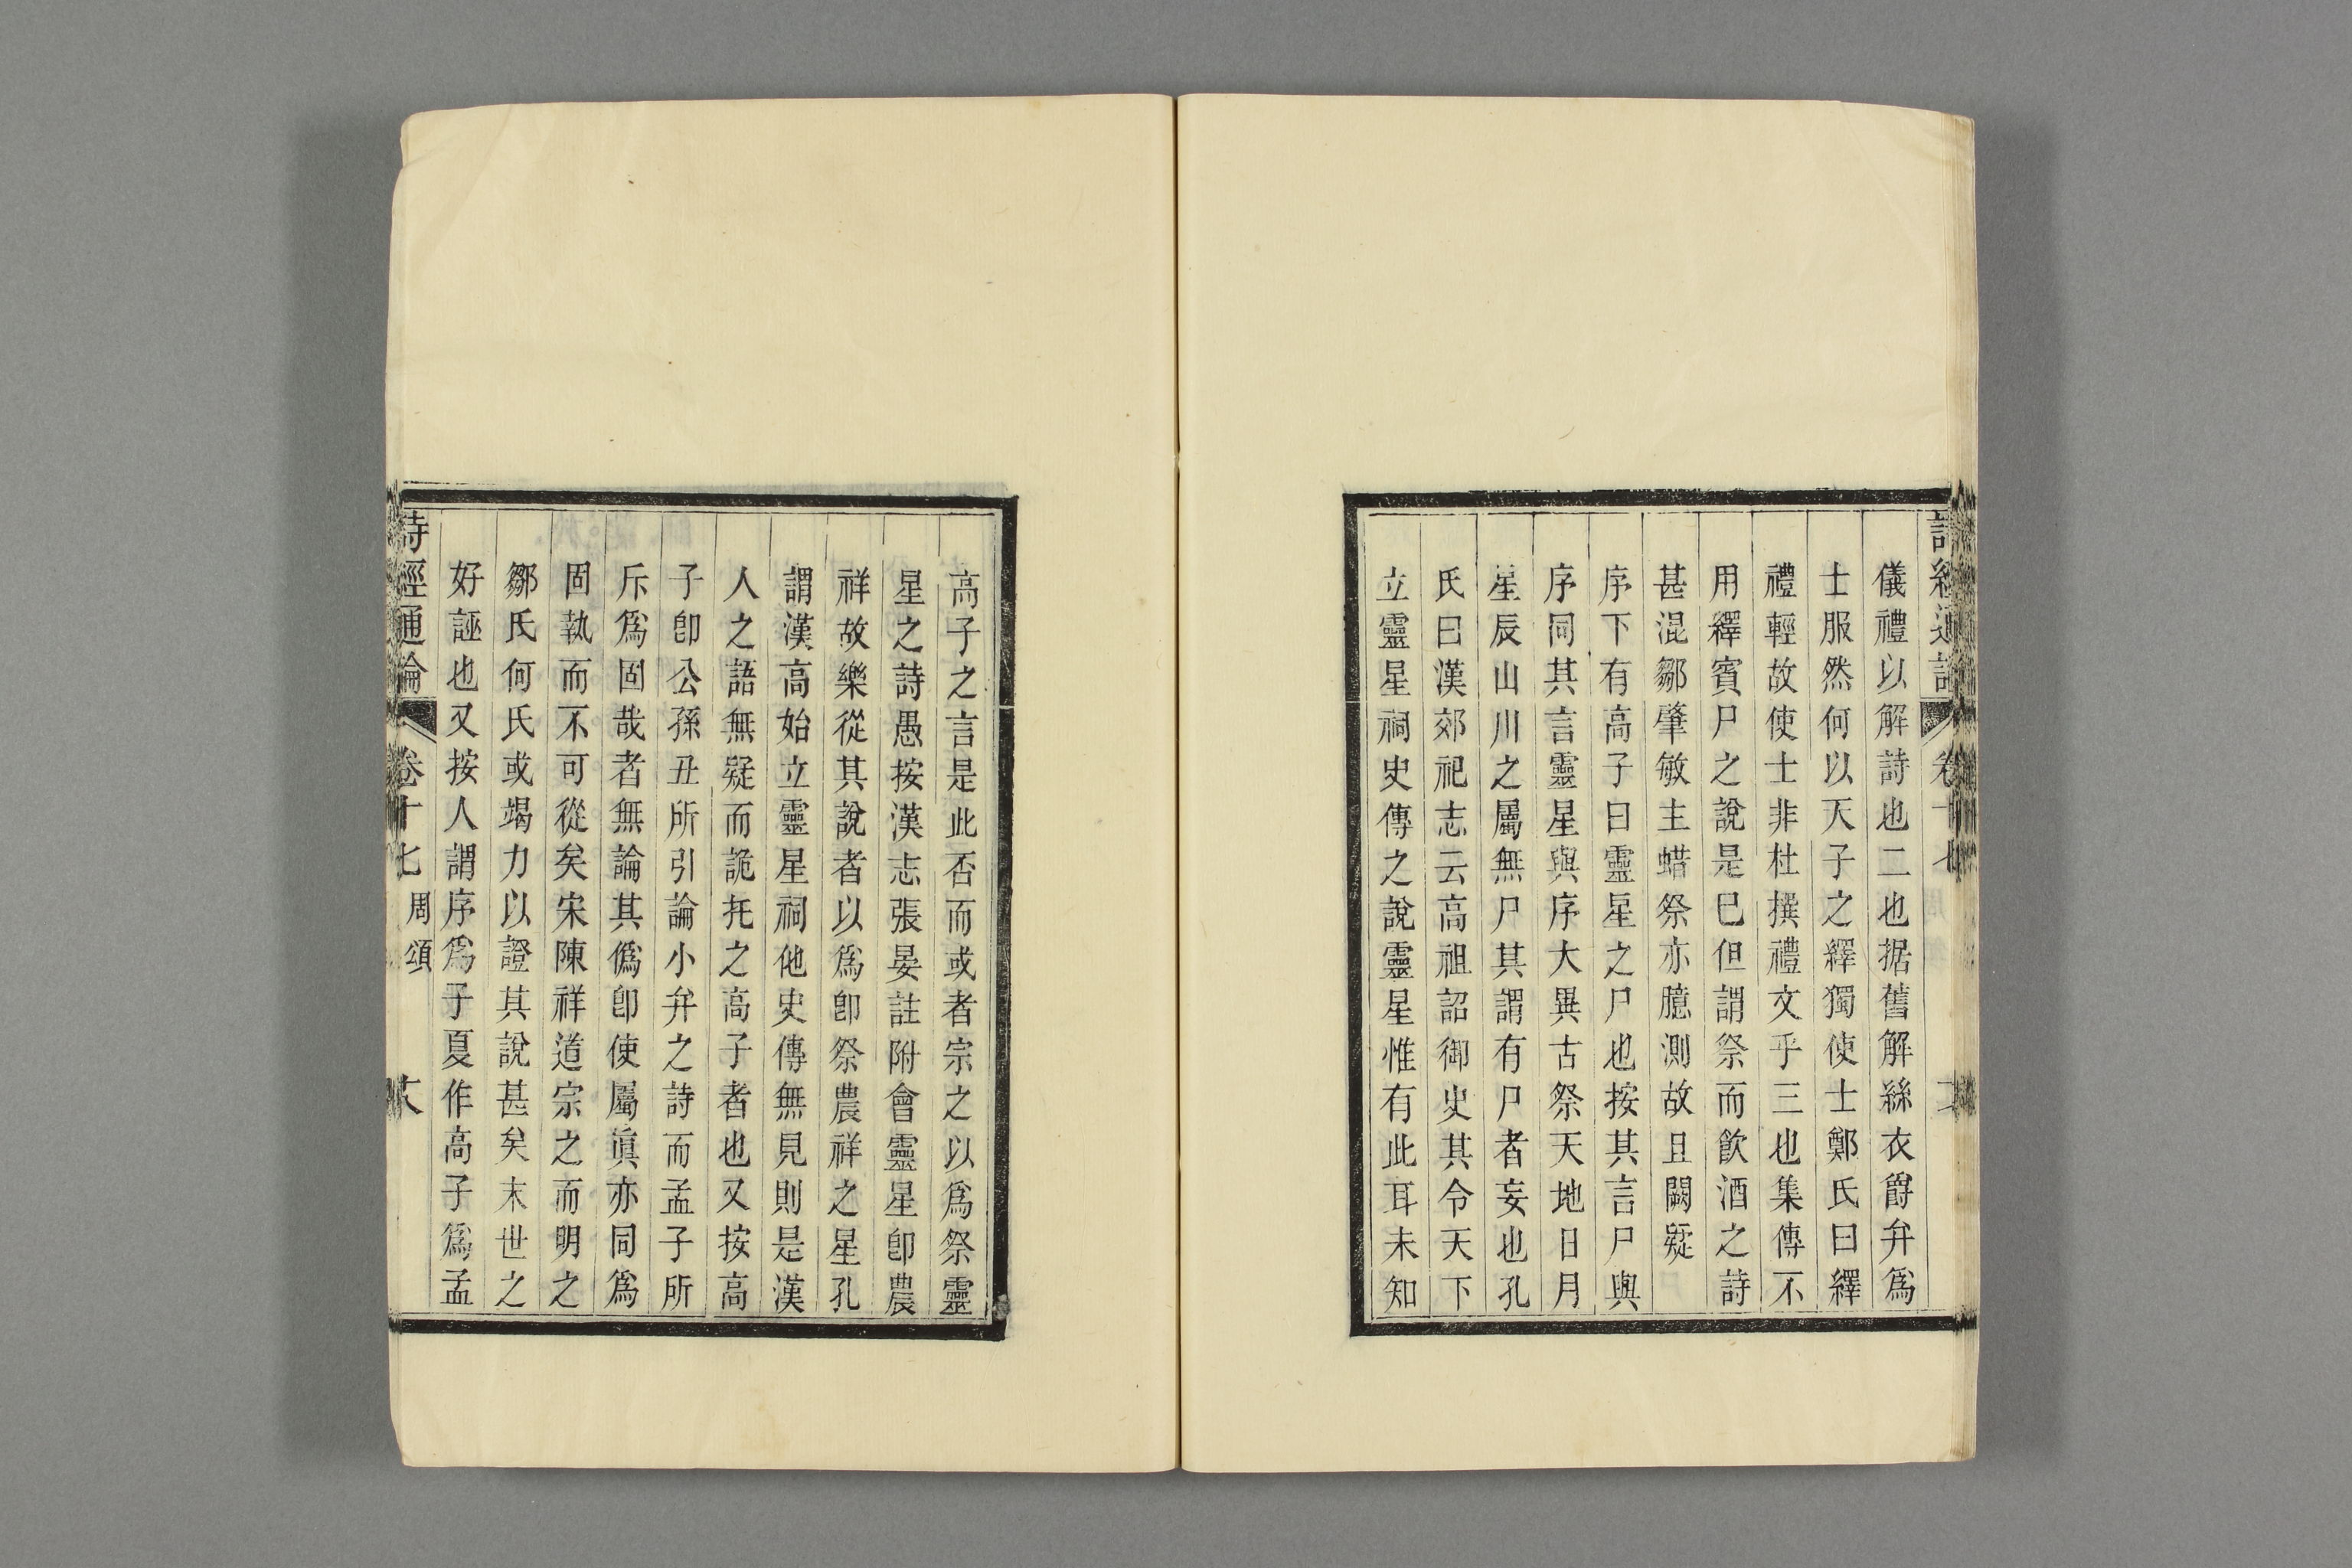 儀禮以解詩也二也据舊解絲衣爵弁爲
士服然何以天子之繹獨使士鄭氏曰繹
禮輕故使士非杜撰禮文乎三也集傳不
用繹賓尸之說是巳但謂祭而飮酒之詩
甚混鄒肇敏主蜡祭亦臆測故且闕疑
序下有高子曰靈星之尸也按其言尸與
序同其言靈星與序大異古祭天地日月
星辰山川之屬無尸其謂有尸者妄也孔
氏曰漢郊祀志云高祖詔御史其令天下
立靈星祠史傳之說靈星惟有此耳未知
高子之言是此否而或者宗之以爲祭靈
星之詩愚按漢志張晏註附會靈星卽農
祥故樂從其說者以爲卽祭農祥之星孔
謂漢高始立靈星祠他史傳無見則是漢
人之語無疑而詭托之高子者也又按高
子卽公孫丑所引論小弁之詩而孟子所
斥爲固哉者無論其僞卽使屬眞亦同爲
固執而不可從矣宋陳祥道宗之而明之
鄒氏何氏或竭力以證其說甚矣末世之
好誣也又按人謂序爲子夏作高子爲孟
詩經通論 卷十七 周頌